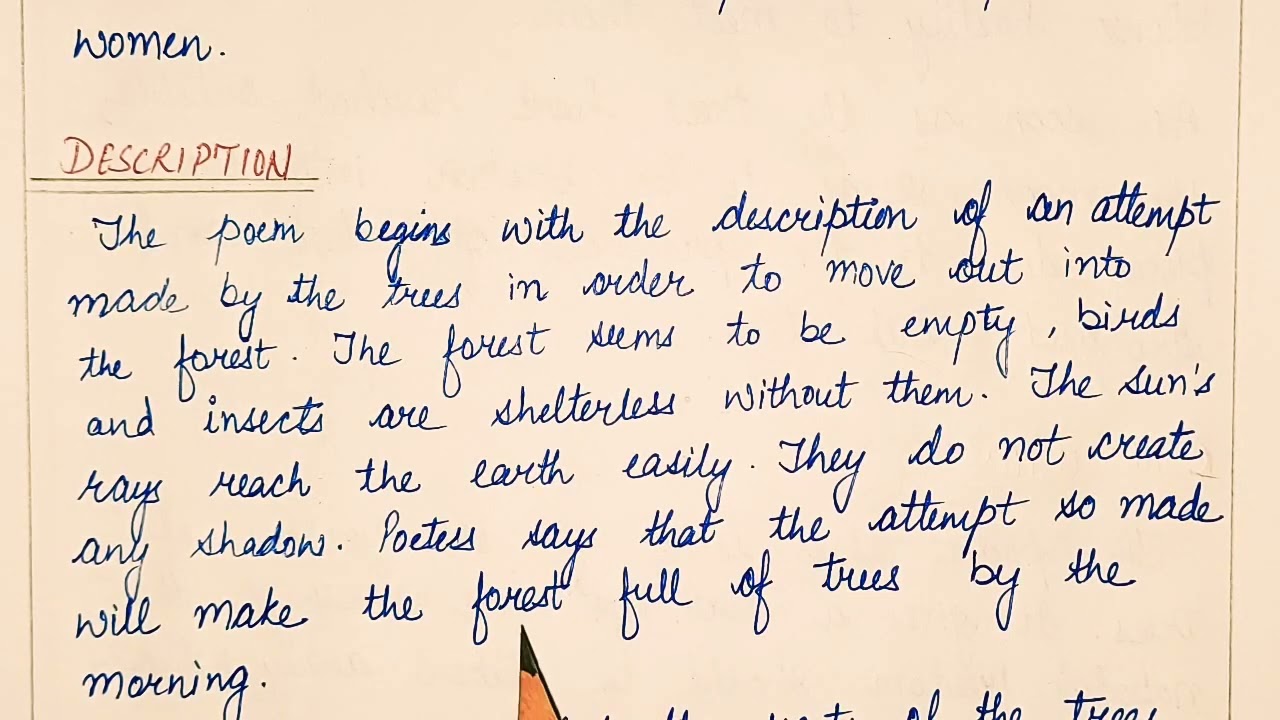 women.
DESCRIPTION
The poem begins with the description of an attempt
made by the trees in order to move out into
the forest. The forest seems to be empty, birds
and insects are shelterless without them. The sun's
rays reach the earth easily. They do not create
any shadow. Poetess says that the attempt so made
will make the forest full of trees by the
morning.
of the trees